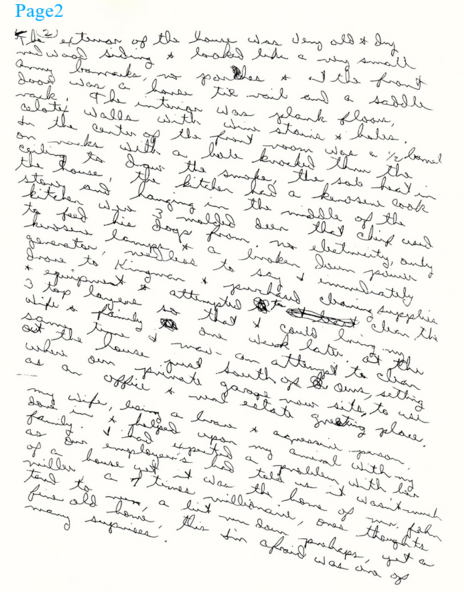 Page2
(2)
The exterior of the house was very old & dry
redwood siding & looked like a very small
army barracks, no porches & at the front
door was a horse tie rail and a saddle
rack. The interior was plank floors,
celotex walls with stains & holes.
In the center of the front room was a ½ barrel
on rocks with a hole knocked thru the
ceiling to draw the smoke, the sole heat in
the house, the kitchen had a kerosene cook
stove and hanging in the middle of the
kitchen were 3 molded deer that chief used
to feed his dogs from. no electricity, only
kerosene lamps & a broken down power
generator, needless to say I immediately
drove to Kingman & purchased cleaning supplies
& equipment & attempted to clean the
3 top layers so that I could bring my
wife & family one week later. At the
same time I made an attempt to clean
out the house just south of ours, setting
where our private garage now sits, to use
as an office & real estate greeting place.
my wife, being a brave & agressive person,
dove in & helped upon my arrival with my
family. I had expected a problem with her
as our employers had told us it wasn't much
of a house yet it was the home of mr. John
miller a times millionaire, ones thoughts
tend to run, a bit run down perhaps, yet a
fine old home, this I'm afraid was one of
many suprises.